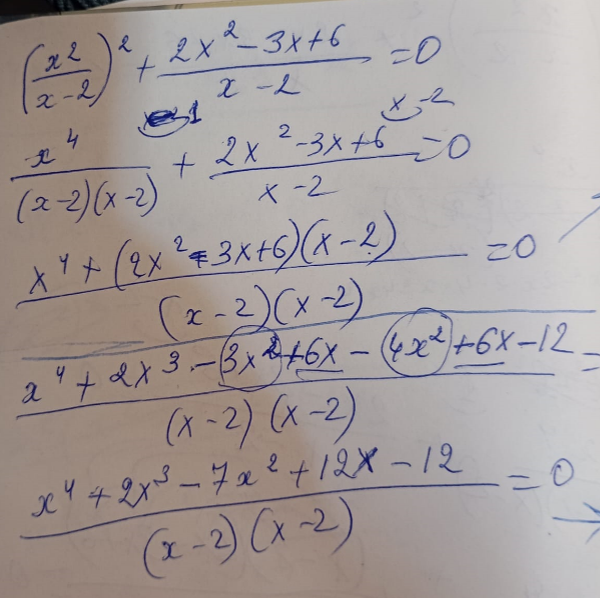 (x²/(x-2))² + (2x²-3x+6)/(x-2) = 0
1 x-2
x⁴/((x-2)(x-2)) + (2x²-3x+6)/(x-2) = 0
(x⁴+(2x²-3x+6)(x-2))/((x-2)(x-2)) = 0
(x⁴+2x³-3x²+6x-4x²+6x-12)/((x-2)(x-2)) =
(x⁴+2x³-7x²+12x-12)/((x-2)(x-2)) = 0